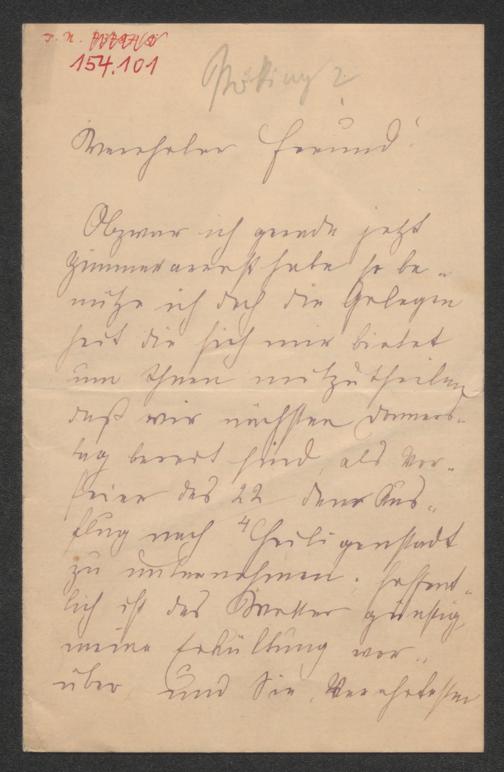 J. N.
154.101
Pötting?
Verehrter Freund!
Obzwar ich gerade jetzt
Zimmerarrest habe so be-
nütze ich doch die Gelegen
heit die sich mir bietet
um Ihnen mitzutheilen
daß wir nächsten Donners-
tag bereit sind, als Vor-
feier des 22 den Aus-
flug nach Heiligenstadt
zu unternehmen. Hoffent-
lich ist das Wetter günstig,
meine Erkältung vor-
über und Sie, Verehrtester